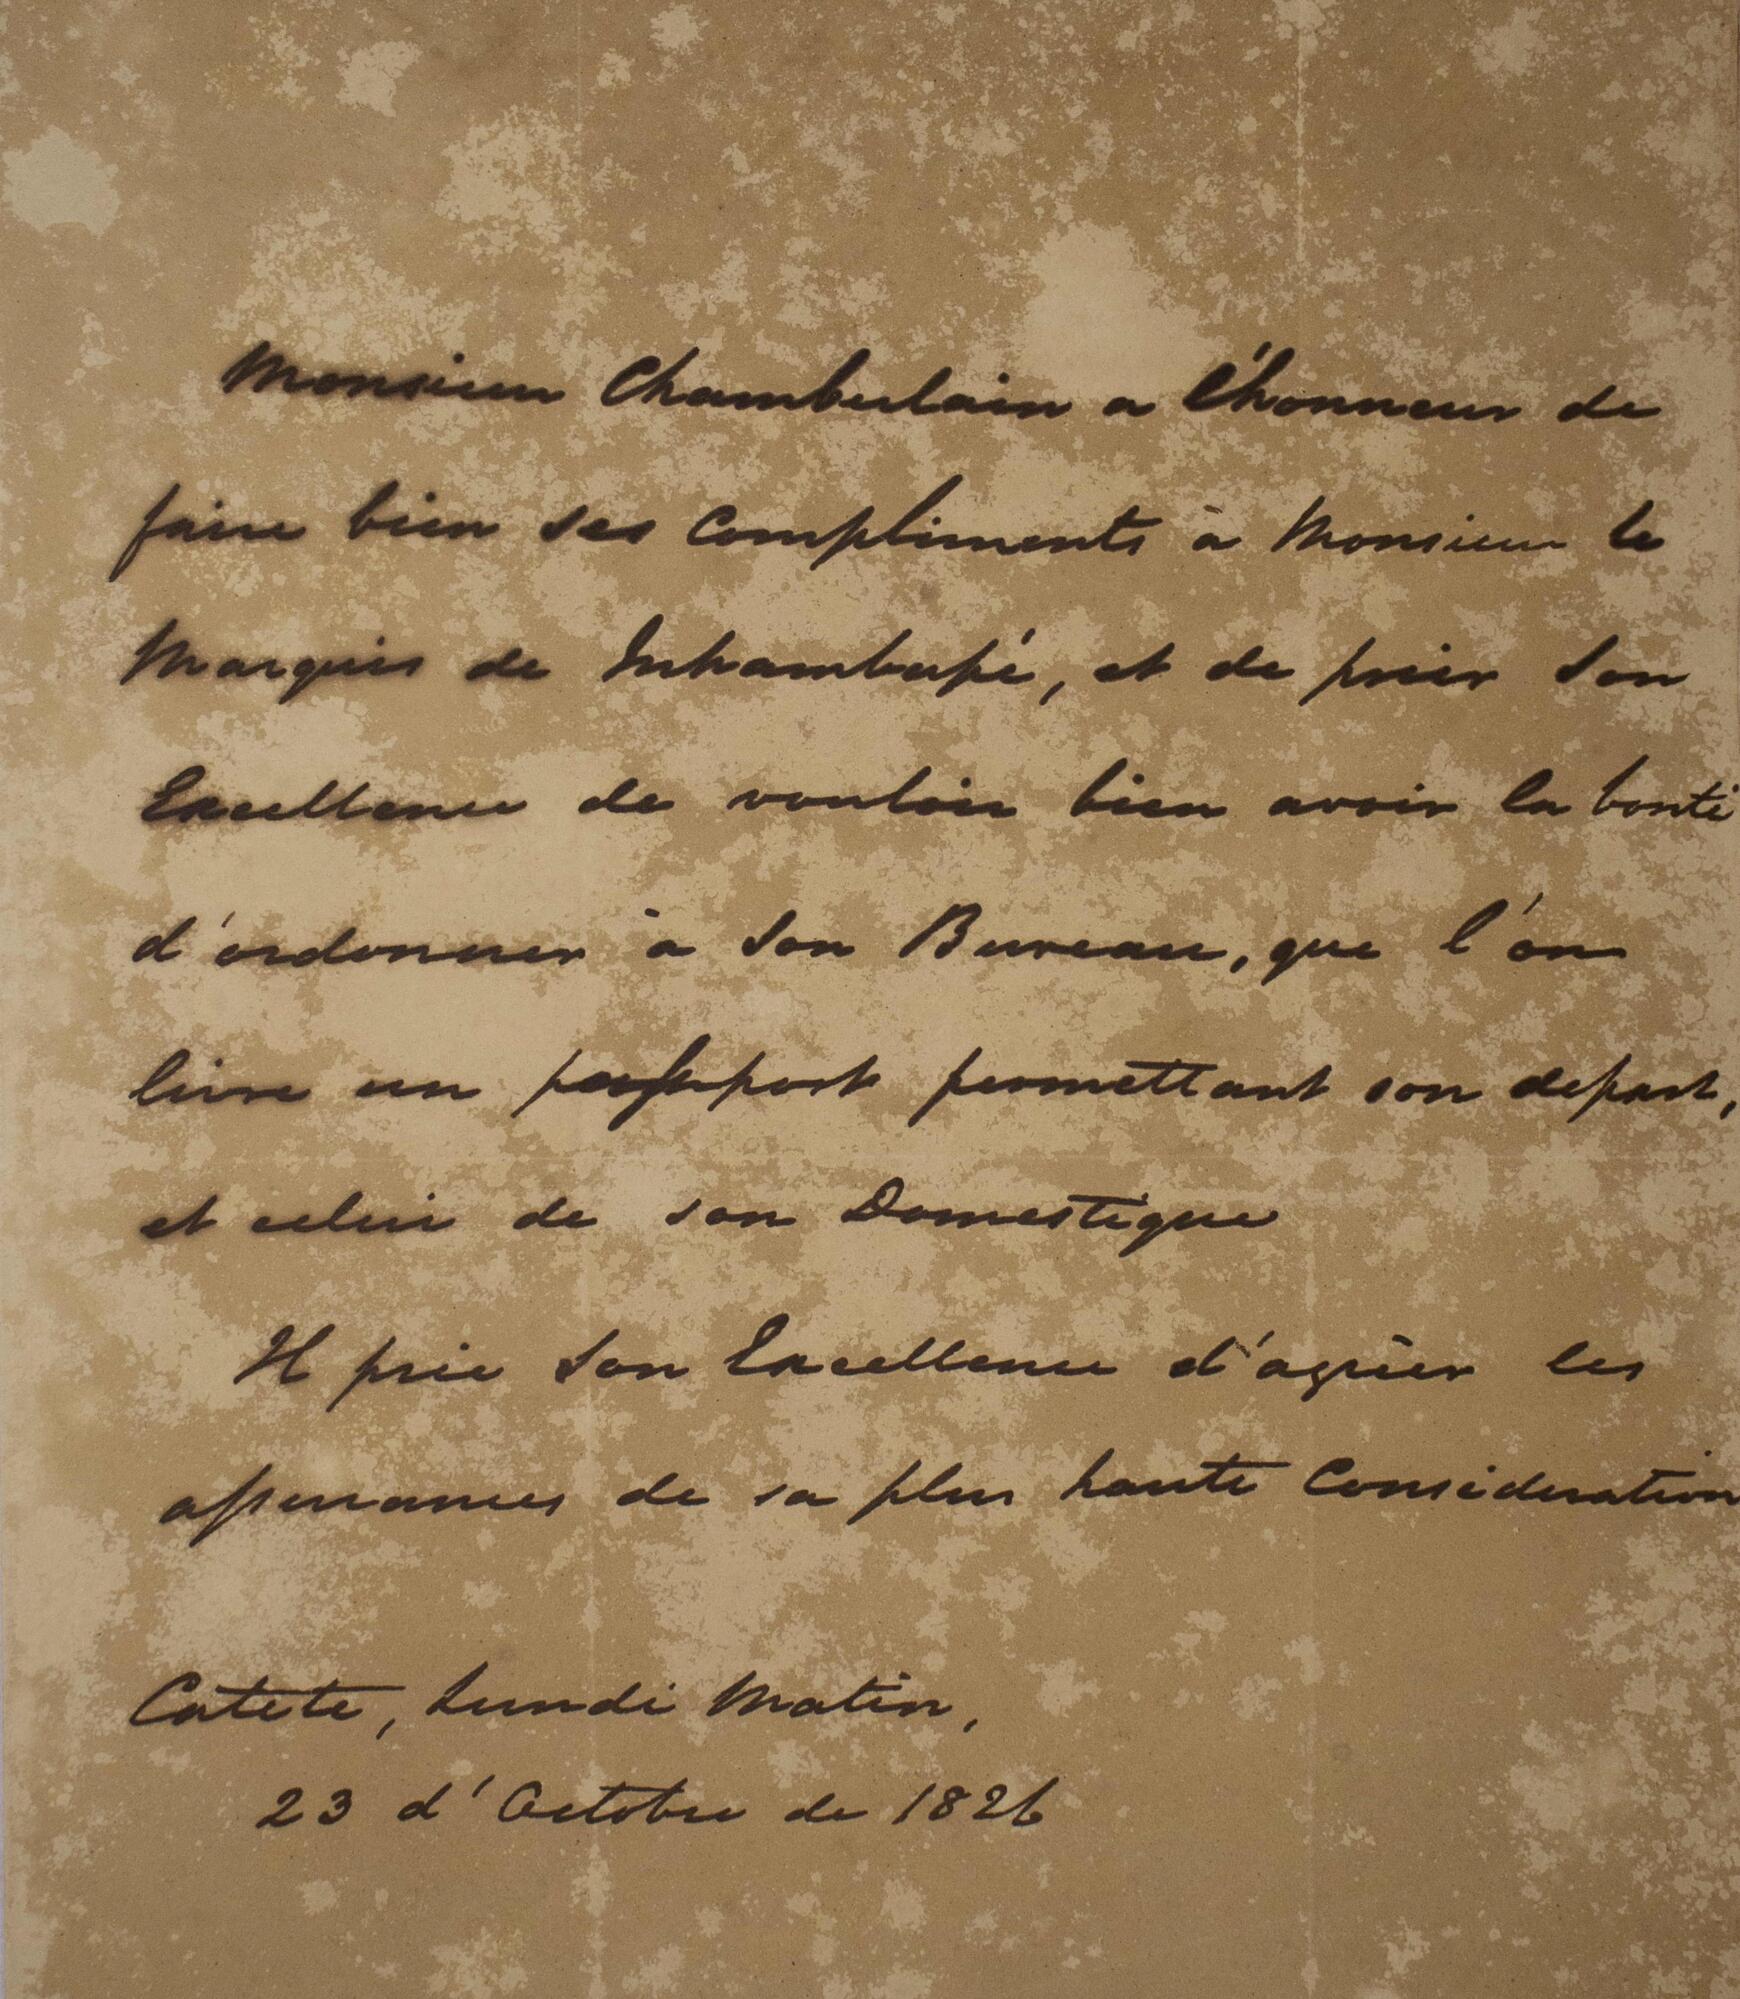 Monsieur Chamberlain a l'honneur de
faire bien ses Compliments à Monsieur le
Marquis de Inhambupé, et de prier Son
Excellence de vouloir bien avoir la bonté
d'ordonner à Son Bureau, que l'on
livre un passeport permettant son depart,
et celui de son Domestique
Il prie Son Excellence d'agrèer les
assurances de sa plus haute Consideration
Catete, Lundi Matin,
23 d'Octobre de 1826